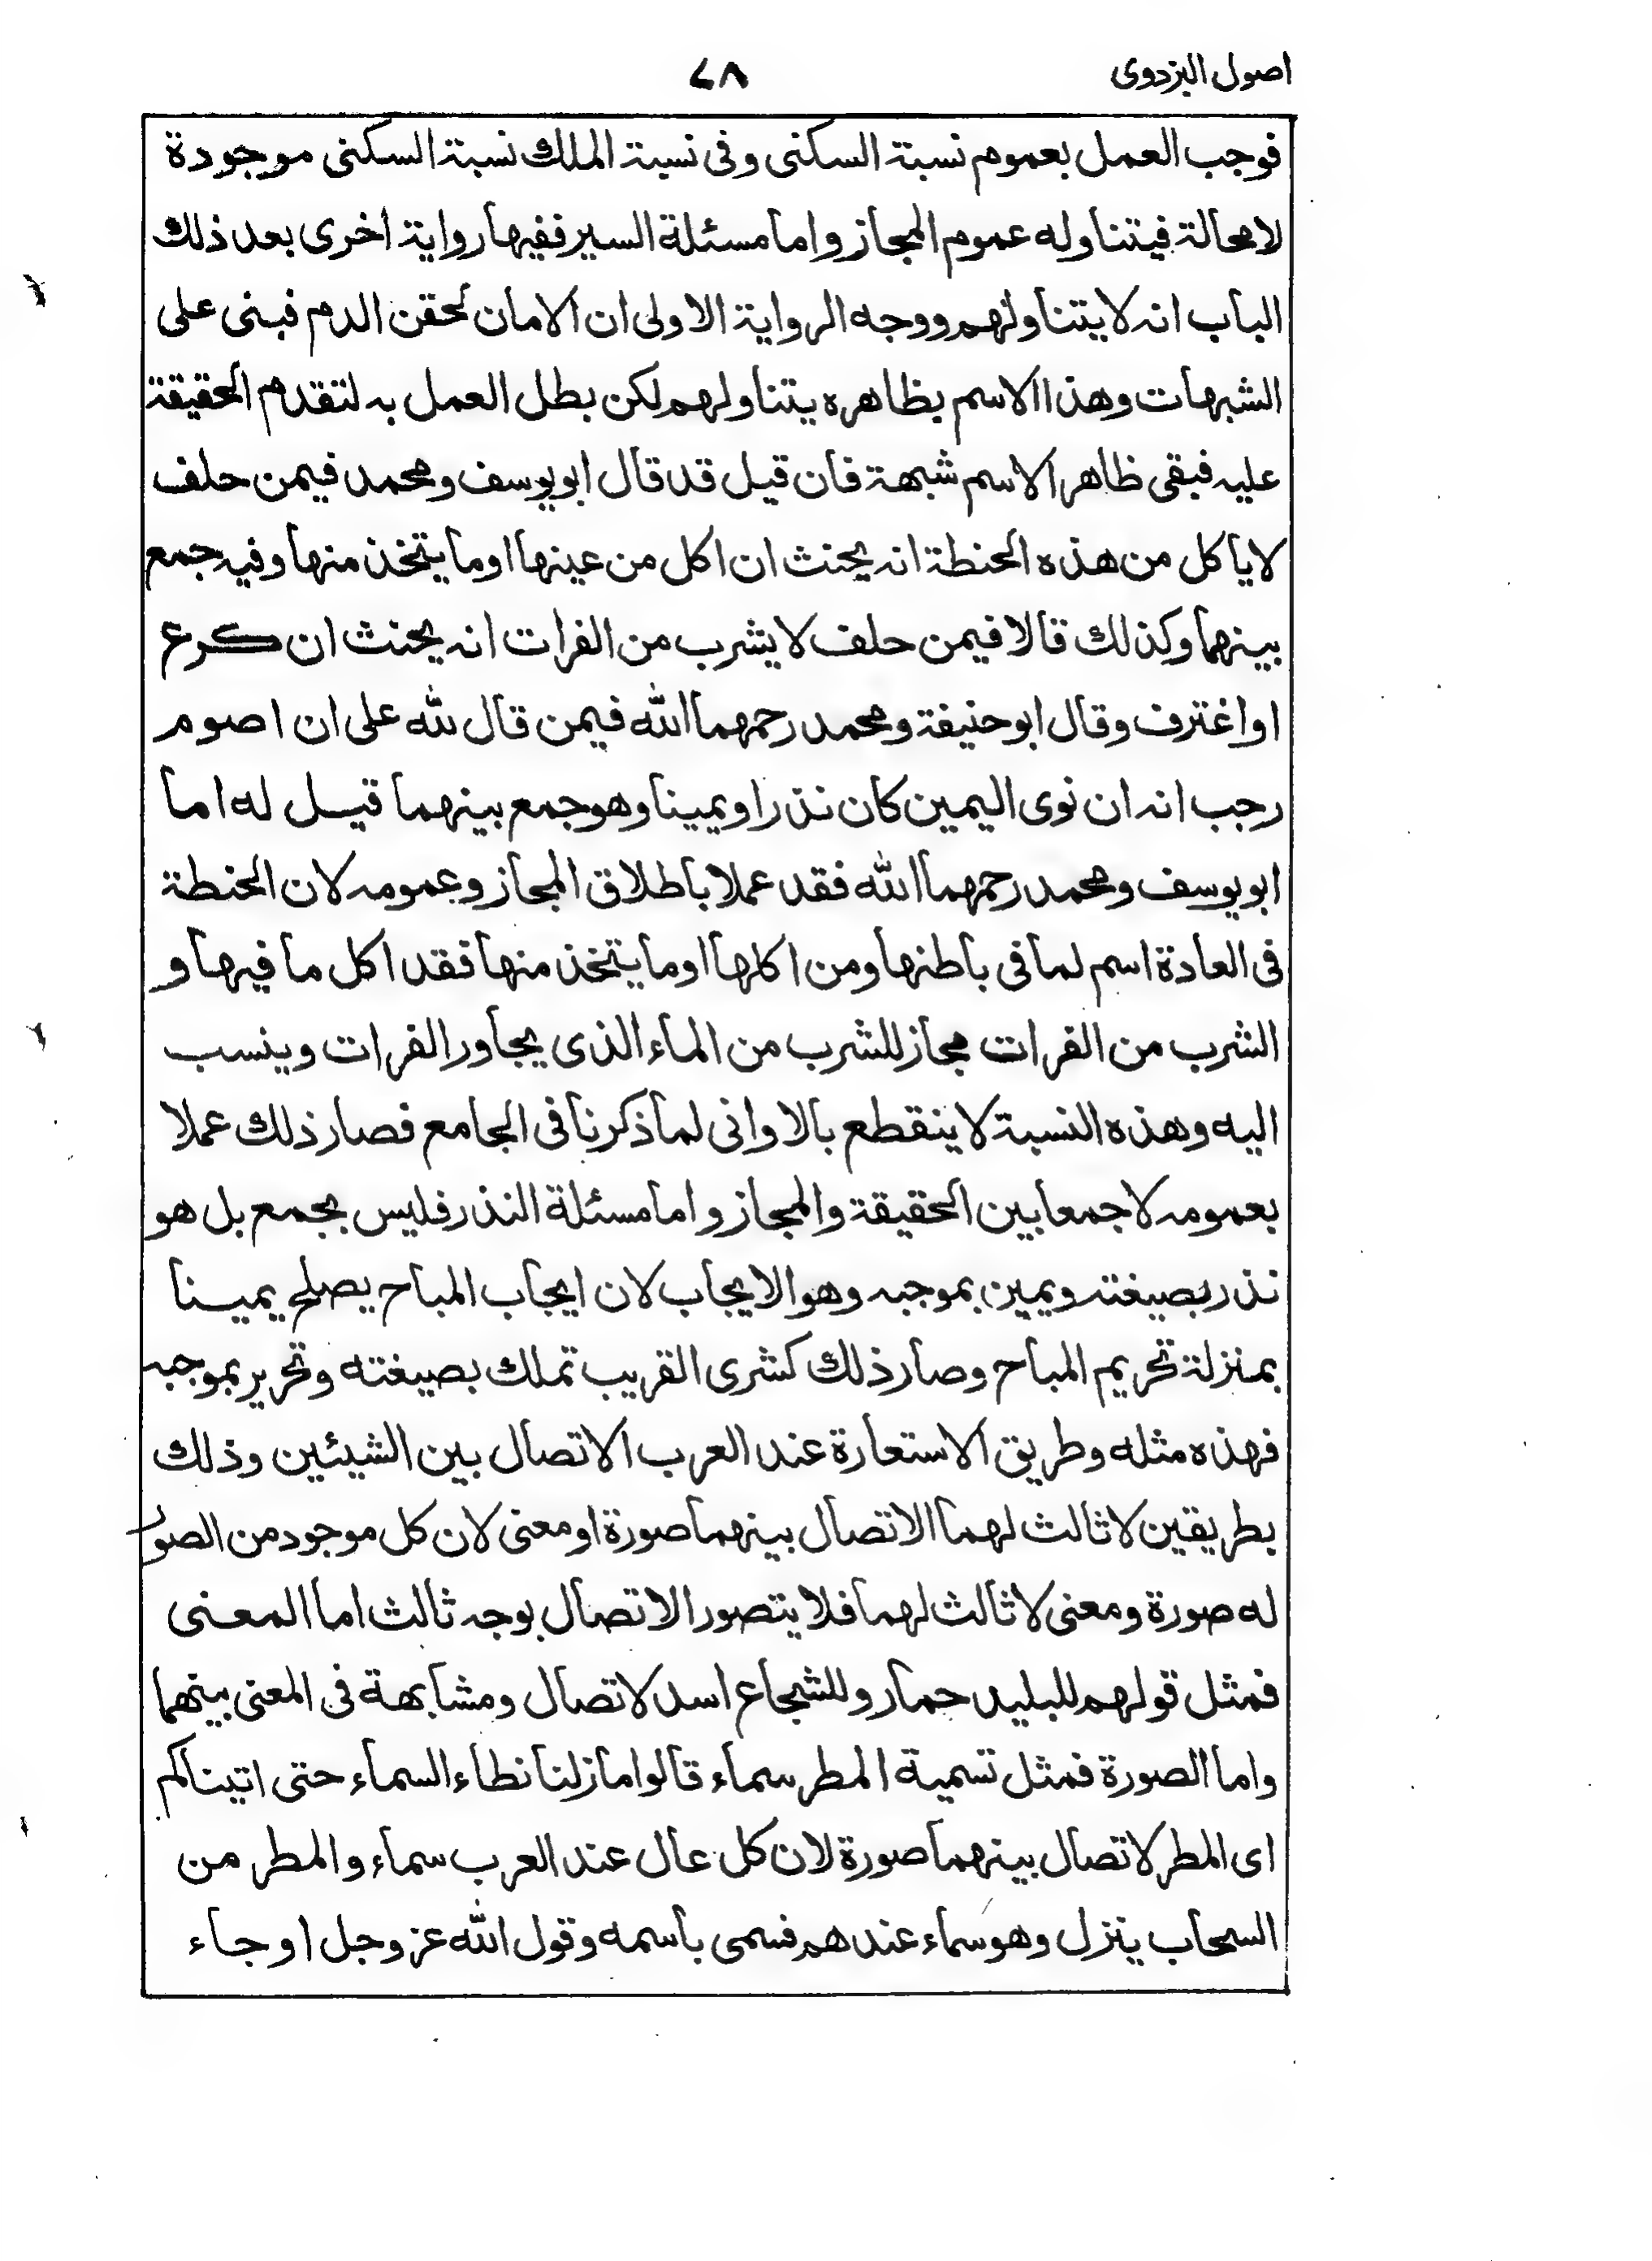 اصول البزدوى ٧٨
فوجب العمل بعموم نسبة السكنى وفى نسبة الملك نسبة السكنى موجودة
لا محالة فيتناوله عموم المجاز واما مسئلة السير ففيها رواية اخرى بعد ذلك
الباب انه لا يتناولهم ووجه الرواية الاولى ان الامان لحقن الدم فبنى على
الشبهات وهذا الاسم بظاهره يتناولهم لكن بطل العمل به لتقدم الحقيقة
عليه فبقى ظاهر الاسم شبهة فان قيل قد قال ابو يوسف ومحمد فيمن حلف
لا ياكل من هذه الحنطة انه يحنث ان اكل من عينها او ما يتخذ منها وفيه جمع
بينهما وكذلك قالا فيمن حلف لا يشرب من الفرات انه يحنث ان كرع
او اغترف وقال ابو حنيفة ومحمد رحمهما الله فيمن قال لله على ان اصوم
رجب انه ان نوى اليمين كان نذرا ويمينا وهو جمع بينهما قيل له اما
ابو يوسف ومحمد رحمهما الله فقد عملا باطلاق المجاز وعمومه لان الحنطة
فى العادة اسم لما فى باطنها ومن اكلها او ما يتخذ منها فقد اكل ما فيها و
الشرب من الفرات مجاز للشرب من الماء الذى يجاور الفرات وينسب
اليه وهذه النسبة لا ينقطع بالاوانى لما ذكرنا فى الجامع فصار ذلك عملا
بعمومه لا جمعا بين الحقيقة والمجاز واما مسئلة النذر فليس بجمع بل هو
نذر بصيغته ويمين بموجبه وهو الايجاب لان ايجاب المباح يصلح يمينا
بمنزلة تحريم المباح وصار ذلك كشرى القريب تملك بصيغته وتحرير بموجبه
فهذه مثله وطريق الاستعارة عند العرب الاتصال بين الشيئين وذلك
بطريقين لا ثالث لهما الاتصال بينهما صورة او معنى لان كل موجود من الصور
له صورة ومعنى لا ثالث لهما فلا يتصور الاتصال بوجه ثالث اما المعنى
فمثل قولهم للبليد حمار وللشجاع اسد لاتصال ومشابهة فى المعنى بينهما
واما الصورة فمثل تسمية المطر سماء قالوا ما زلنا نطاء السماء حتى اتيناكم
اى المطر لاتصال بينهما صورة لان كل عال عند العرب سماء والمطر من
السحاب ينزل وهو سماء عندهم فسمى باسمه وقول الله عز وجل او جاء